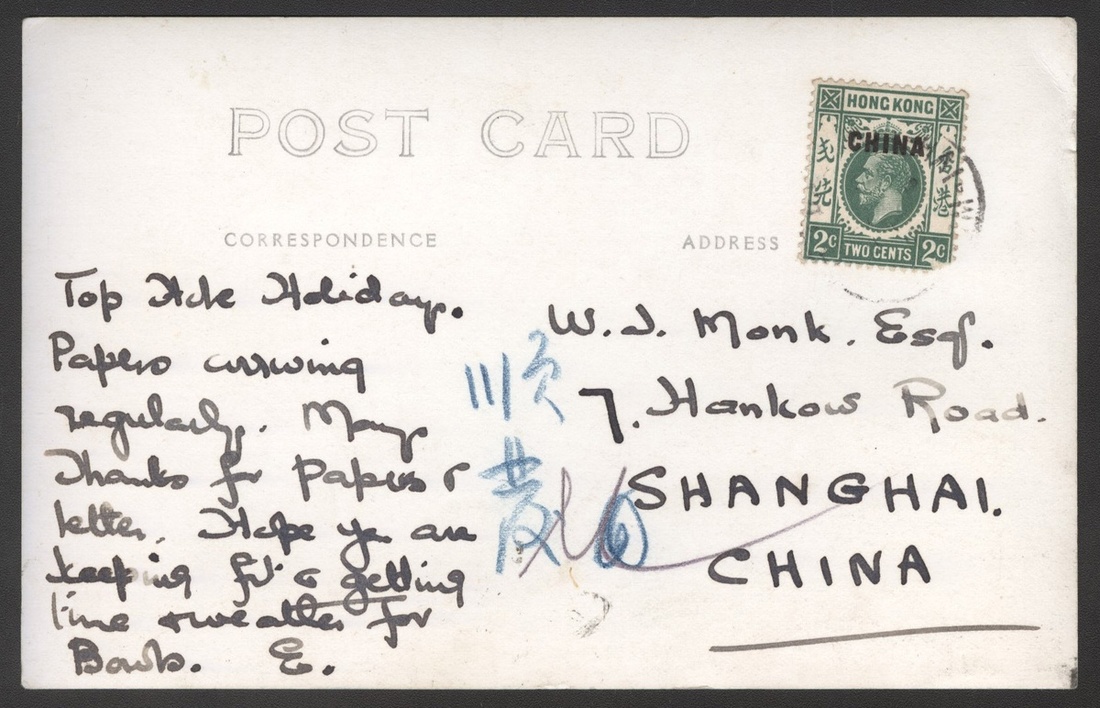 POST CARD
CORRESPONDENCE
ADDRESS
HONG KONG
CHINA
香港
先
2c TWO CENTS 2c
Top Hole Holiday.
Papers arriving
regularly. Many
Thanks for papers &
letter. Hope you are
keeping fit & getting
fine weather for
Bowls. E.
W. J. Monk. Esq.
7. Hankow Road.
SHANGHAI.
CHINA
順